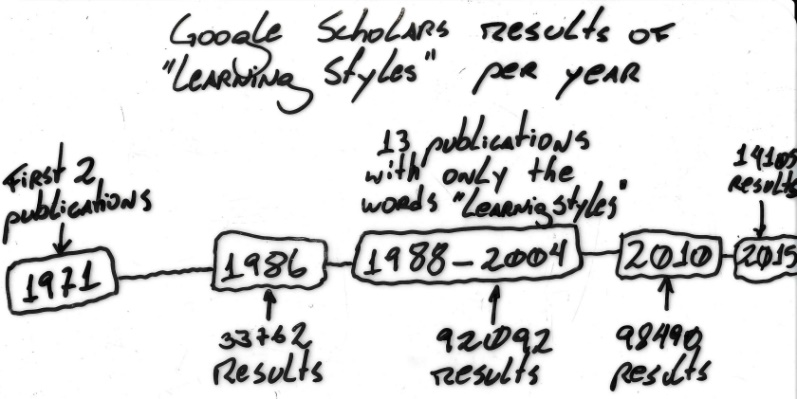 Google Scholars results of
"Learning Styles" per year
First 2
publications
1971
1986
33762
Results
13 publications
with only the
words "Learnig styles"
1988-2004
92092
results
2010
98490
results
14105
results
2015